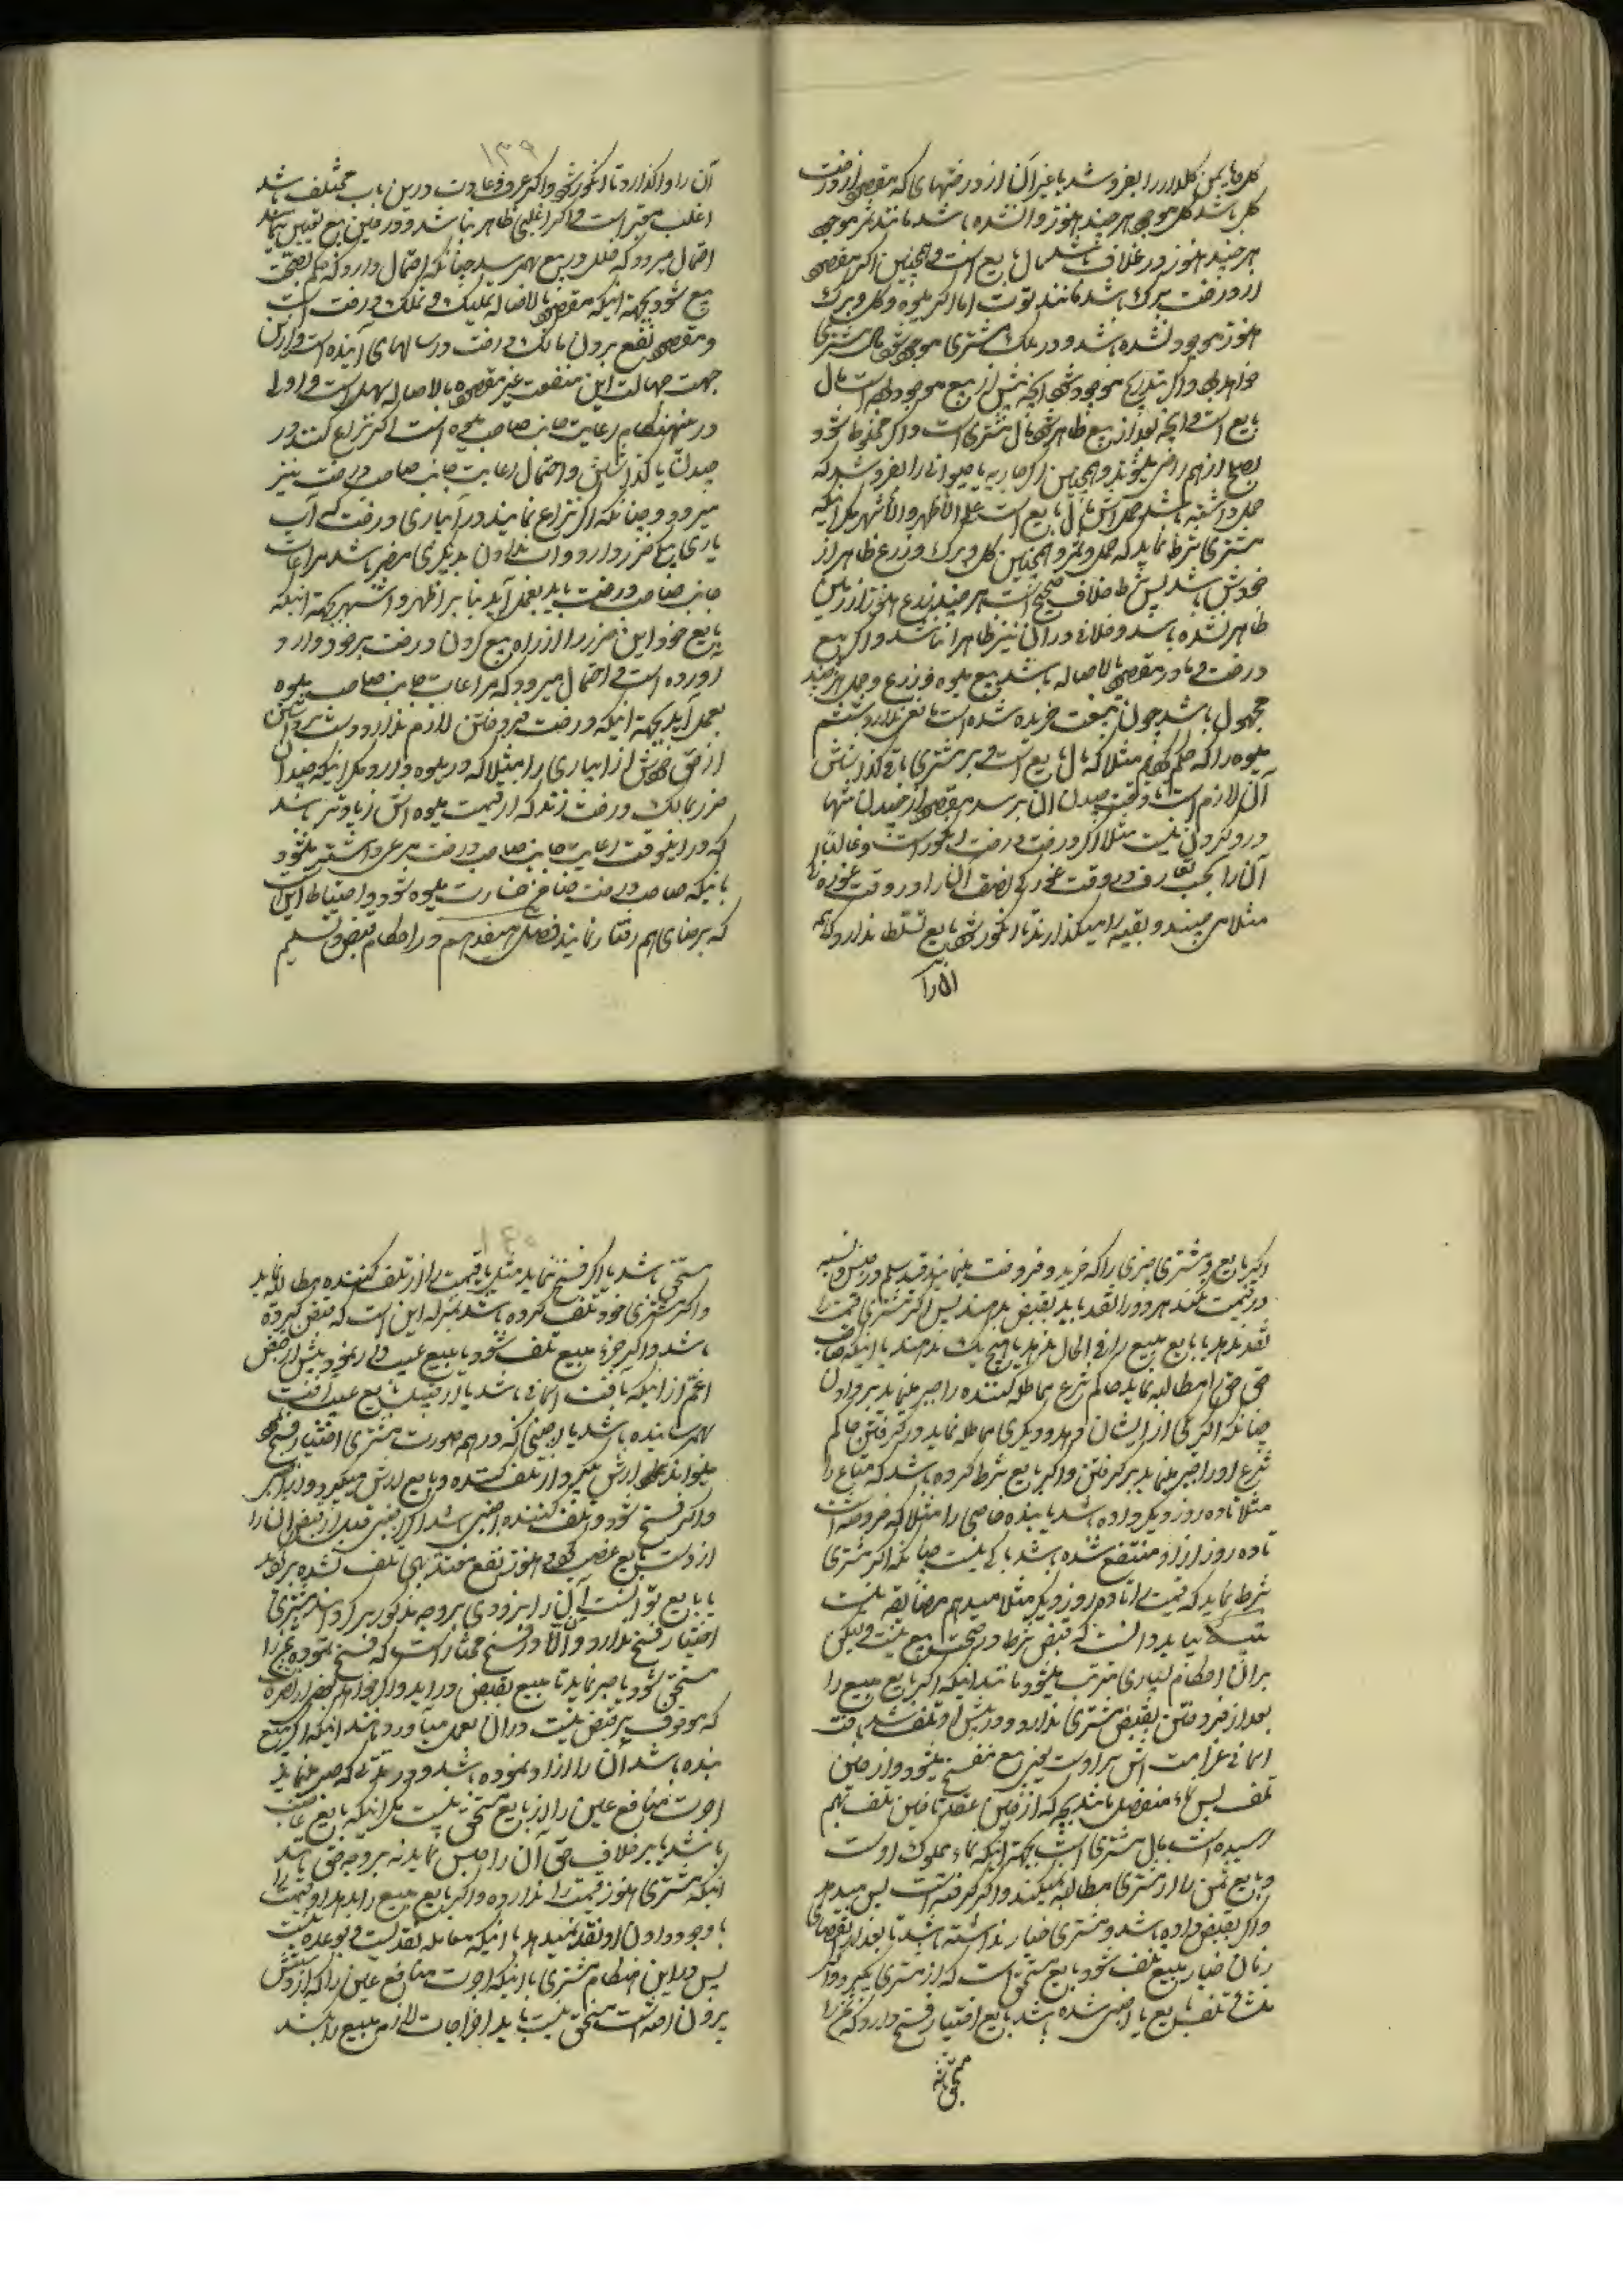 گل یا یمن گلدار را بفروشد یا غیر آن از درختهای که مقصود از درخت
گل باشد گل موجود هر چند هنوز وا نشده باشد مانند ثمر موجود
هر چند هنوز در غلاف باشد مال بایع است و همچنین اگر مقصود
از درخت برگ باشد مانند توت اما اگر میوه و گل و برگ
هنوز موجود نشده باشد و در ملک مشتری موجود شود مال مشتری
خواهد بود و اگر بتدریج موجود شود آنچه پیش از بیع موجود بوده است مال
بایع است و آنچه بعد از بیع ظاهر شود مال مشتری است و اگر مخلوط شود
بصلح از هم راضی میشوند و همچنین اگر جاریه یا حیوانی را بفروشد که
حمل داشته باشد حملش مال بایع است علی الاظهر والاشهر مگر اینکه
مشتری شرط نماید که حمل و ثمر و همچنین گل و برگ و زرع ظاهر از
خودش باشد پس شرط خلاف صحیح است هر چند زرع هنوز از زمین
ظاهر نشده باشد و خلافی در آن نیز ظاهرا نباشد و اگر بیع
درخت و مادر مقصود بالاصاله باشد بیع میوه و زرع و حمل هر چند
مجهول باشد چون بتبعیت خریده شده است مانعی ندارد ششم
میوه را که حکم کردیم مثلا که مال بایع است و بر مشتری باقی گذاشتن
آن لازم است تا وقت چیدن آن برسد مقصود از چیدن منتها
درو کردن نیست مثلا اگر درخت درخت انگور است و غالبا
آن را بحسب تعارف در وقت غوره گی نصف آن را در وقت غوره گی
مثلا می چینند و بقیه را میگذارند تا انگور شود بایع تسلط ندارد که همه
آن را
۱۳۹
آن را واگذارد تا انگور شود و اگر عرف و عادت در این باب مختلف باشد
اغلب معتبر است و اگر اغلبی ظاهر نباشد و در حین بیع تعیین ننمایند
احتمال میرود که خلل در بیع بهم رسد چنانکه احتمال دارد که حکم بصحت
بیع شود بجهة اینکه مقصود بالاصاله تملیک و تملک درخت است
و مقصود نفع بردن مالک درخت در سالهای آینده است و از این
جهت جهالت این منفعت غیر مقصوده بالاصاله سهل است و اولی
در اینهنگام رعایت جانب صاحب میوه است اگر نزاع کنند در
چیدن یا گذاشتن و احتمال رعایت جانب صاحب درخت نیز
میرود و چنانکه اگر نزاع نمایند در آبیاری درخت که آب
یاری بیکی ضرر دارد و آب ندادن بدیگری مضر باشد مراعات
جانب صاحب درخت باید بعمل آید بنا بر اظهر و اشهر بجهة اینکه
بایع خود این ضرر را از راه بیع کردن درخت بر خود وارد
آورده است و احتمال میرود که مراعات جانب صاحب میوه
بعمل آید بجهة اینکه درخت فروختن لازم ندارد دست برداشتن
از حق خودش از آبیاری را مثلا که در میوه دارد مگر اینکه چندان
ضرر بمالک درخت زند که از قیمت میوه اش زیادتر باشد
که در اینوقت رعایت جانب صاحب درخت مرعی داشته میشود
باینکه صاحب درخت ضامن خسارت میوه شود و احتیاط این است
که برضای هم رفتار نمایند فصل هیفدهم در احکام قبض و تسلیم
و اگر بایع و مشتری چیزی را که خرید و فروخت مینمایند قید سلم در جنس و نسیه
در قیمت نکنند هر دو را نقد باید بقبض بدهند پس اگر مشتری قیمت را
نقد ندهد یا بایع مبیع را فی الحال ندهد یا هیچ یک ندهند با اینکه صاحب
حق حق را مطالبه نماید حاکم شرع مماطله کننده را جبر مینماید بر دادن
چنانکه اگر یکی از ایشان بدهد و دیگری مماطله نماید در گرفتن حاکم
شرع او را جبر مینماید بر گرفتن و اگر بایع شرط کرده باشد که متاع را
مثلا تا ده روز دیگر داده باشد یا بنده خاصی را مثلا که فروخته است
تا ده روز از او منتفع شده باشد باکی نیست چنانکه اگر مشتری
شرط نماید که قیمت را تا ده روز دیگر مثلا میدهم مضایقه نیست
تنبیه بباید دانست که قبض شرط در صحت بیع نیست و لیکن
بر آن احکام بسیاری مترتب میشود مانند اینکه اگر بایع مبیع را
بعد از فروختن بقبض مشتری ندارد و در پیش او تلف شد بآفت
آسمانی غرامت اش بر اوست یعنی بیع منفسخ میشود و از حین
تلف پس نماء منفصل مانند بچه که از حین عقد تا حین تلف بهم
رسیده است مال مشتری است بجهة اینکه نماء مملوک اوست
و بایع ثمن را از مشتری مطالبه نمیکند و اگر گرفته است پس میدهد
و اگر بقبض داده باشد و مشتری خیار نداشته باشد تا بعد از انقضای
زمان خیار مبیع تلف شود بایع مستحق است که از مشتری بگیرد و اگر
منشاء تلف بایع یا اجنبی شده باشد بایع اختیار فسخ دارد که ثمن را
مستحق باشد
۱۴۰
مستحق باشد یا اگر فسخ ننماید مثل یا قیمت را از تلف کننده مطالبه نماید
و اگر مشتری خود تلف کرده باشد بمنزله این است که قبض کرده
باشد و اگر جزء مبیع تلف شود یا مبیع عیب داری نمود پیش از قبض
اعم از اینکه بآفت آسمانی باشد یا از قبیل بایع عیب و آفت
بهم رسانیده باشد یا اجنبی که در هم صورت مشتری اختیار فسخ دارد
میتواند ارش بگیرد از تلف کننده و بایع ارش میگیرد
و اگر فسخ شود و تلف کننده اجنبی باشد و اگر اجنبی قبل از قبض آن را
از دست بایع غصب کرد و هنوز نفع معتد بهی تلف نشده برگرداند
یا بایع توانست آن را بزودی بر وجه مذکور برگرداند مشتری
اختیار فسخ ندارد و الا در فسخ مختار است که فسخ نموده ثمن را
مستحق شود یا صبر نماید تا مبیع بقبض در آید
که موقوف بر قبض نیست در آن بعمل میآورد مانند اینکه اگر مبیع
بنده باشد آن را آزاد نموده باشد و در مدتی که صبر مینماید
اجرت منافع عین را از بایع مستحق نیست مگر اینکه بایع غاصب
باشد یا بر خلاف حق آن را حبس نماید نه بر وجه حق مانند
اینکه مشتری هنوز قیمت را نداده و اگر بایع مبیع را بدهد او قیمت را
با وجود دادن او نقد نمیدهد با اینکه معامله نقد است و بوعده نیست
پس در این هنگام مشتری با اینکه اجرت منافع عین را که از دستش
بیرون رفته است مستحق نیست باید اخراجات لازمی مبیع را بکشد